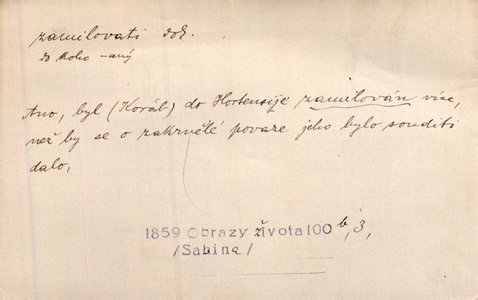 zamilovati dok.
do koho -aný
Ano, byl (Koráb) do Hortensije zamilován více,
než by se o zakrnělé povaze jeho bylo souditi
dalo,
1859 Obrazy života 100 b, 3,
/Sabina/